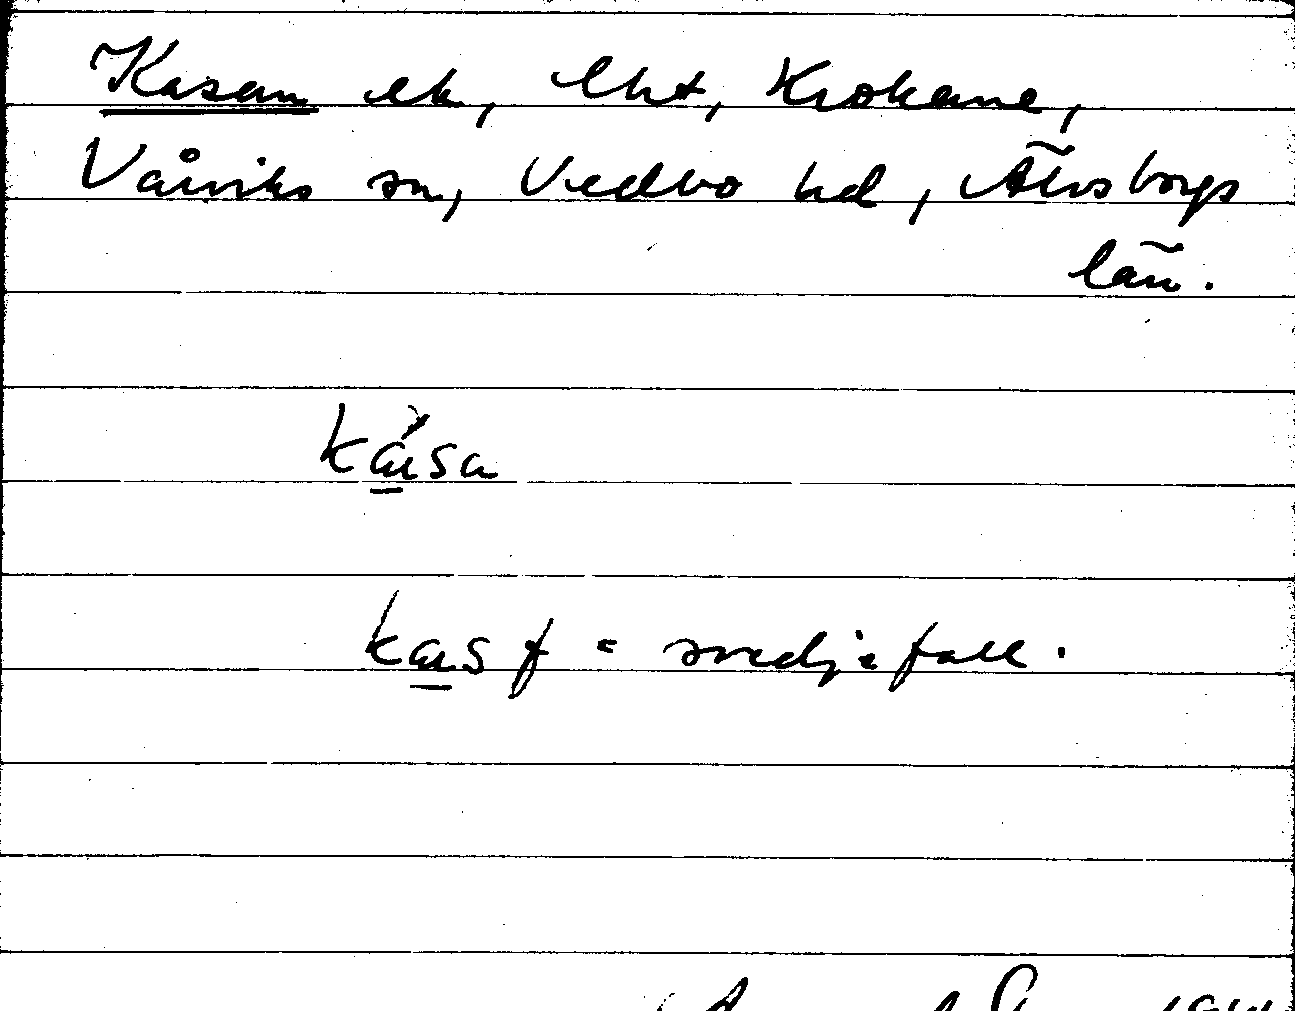 Kasen ek, lht, Krokane,
Vårviks sn, Vedbo hd, Älvsborgs
län.
kàsa
kas f = svedjefall.